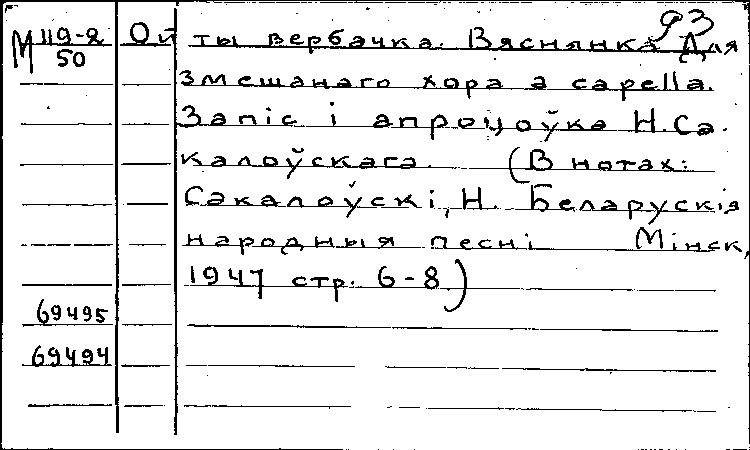 93
М 119-2 Ой ты вербачка. Вяснянка Для
50
змешанаго хора a capella.
Запіс і апрацоўка Н. Са-
калоўскага. (В нотах:
Сакалоўскі, Н. Беларускія
народныя песні Мінск,
1947 стр. 6-8.)
69495
69494